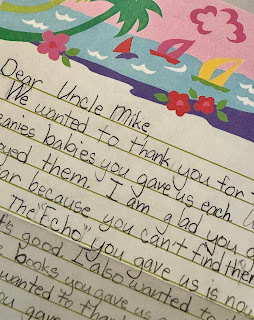 Dear Uncle Mike
We wanted to thank you for
eanies babies you gave us each.
oyed them. I am glad you g
ar because you can't find them
The "Echo" you gave us is now
t's good. I also wanted to th
books you gave us
wanted to than
ou gave